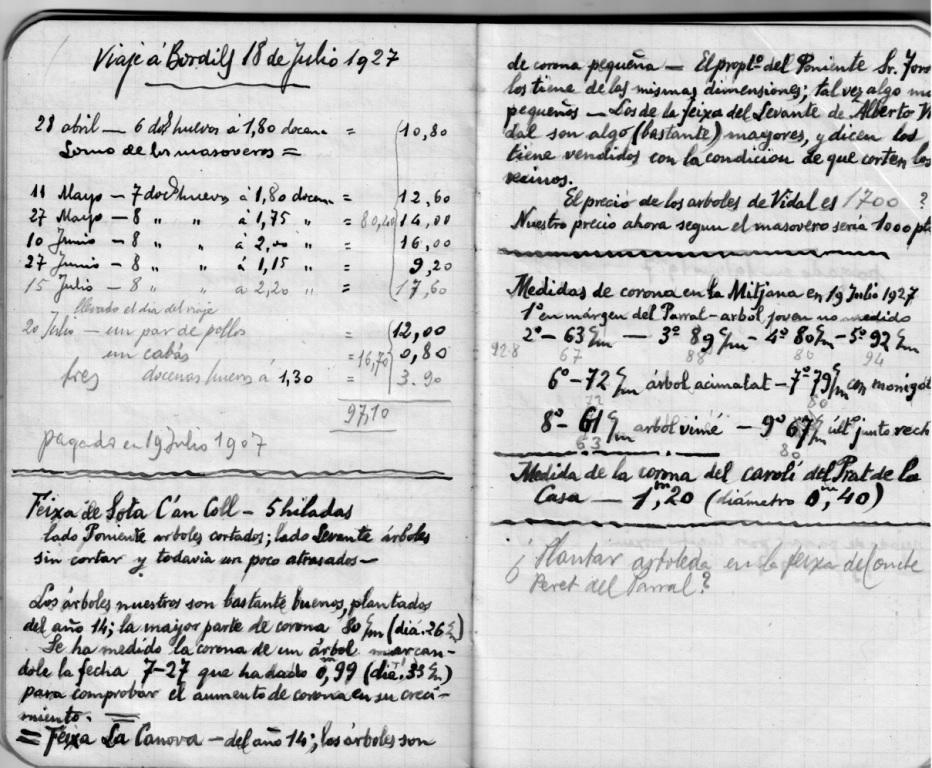 Viaje á Bordils 18 de Julio 1927
28 abril — 6 doc huevos á 1,80 docena = 10,80
Somo de los masoveros =
11 Mayo — 7 doc huevos á 1,80 docena = 12,60
27 Mayo — 8 " " á 1,75 " = 80,40 14,00
10 Junio — 8 " " á 2,00 " = 16,00
27 Junio — 8 " " á 1,15 " = 9,20
15 Julio — 8 " " a 2,20 " = 17,60
llevado el dia del viaje
20 Julio — un par de pollos = 12,00
un cabás = 16,70 0,80
tres docenas huevos á 1,30 = 3.90
97,10
pagada en 19 Julio 1907
Feixa de Sota C'an Coll — 5 hiladas
lado Poniente arboles cortados; lado Levante árboles
sin cortar y todavia un poco atrasados —
Los árboles nuestros son bastante buenos, plantados
del año 14; la mayor parte de corona 80 c/m (diá. 26 c/m)
Se ha medido la corona de un árbol marcan-
dole la fecha 7-27 que ha dado 0,99 (diá. 33 c/m)
para comprobar el aumento de corona en su creci-
miento. =
= Feixa La Canova — del año 14; los árboles son
de corona pequeña — El proptº del Poniente Sr.
los tiene de las mismas dimensiones; tal vez algo
pequeños — Los de la feixa del Levante de Alberto Vi
dal son algo (bastante) mayores, y dicen los
tiene vendidos con la condicion de que corten los
vecinos.
El precio de los arboles de Vidal es 1700 ?
Nuestro precio ahora segun el masovero seria 1000 pts
Medidas de corona en la Mitjana en 19 Julio 1927
1º en márgen del Parral — arbol joven no medido
2º — 63 c/m — 3º 89 c/m — 4º 80 c/m — 5º 92 c/m
92-8 67 88 80 94
6º — 72 c/m árbol acimalat — 7º 79 c/m con monigot
72 80
8º — 61 c/m arbol vimé — 9º 67 c/m últº junto rech
63 80
Medida de la corona del carolí del Prat de la
Casa — 1m,20 (diámetro 0m,40)
¿ Plantar arboleda en la feixa del
Peret del Parral?